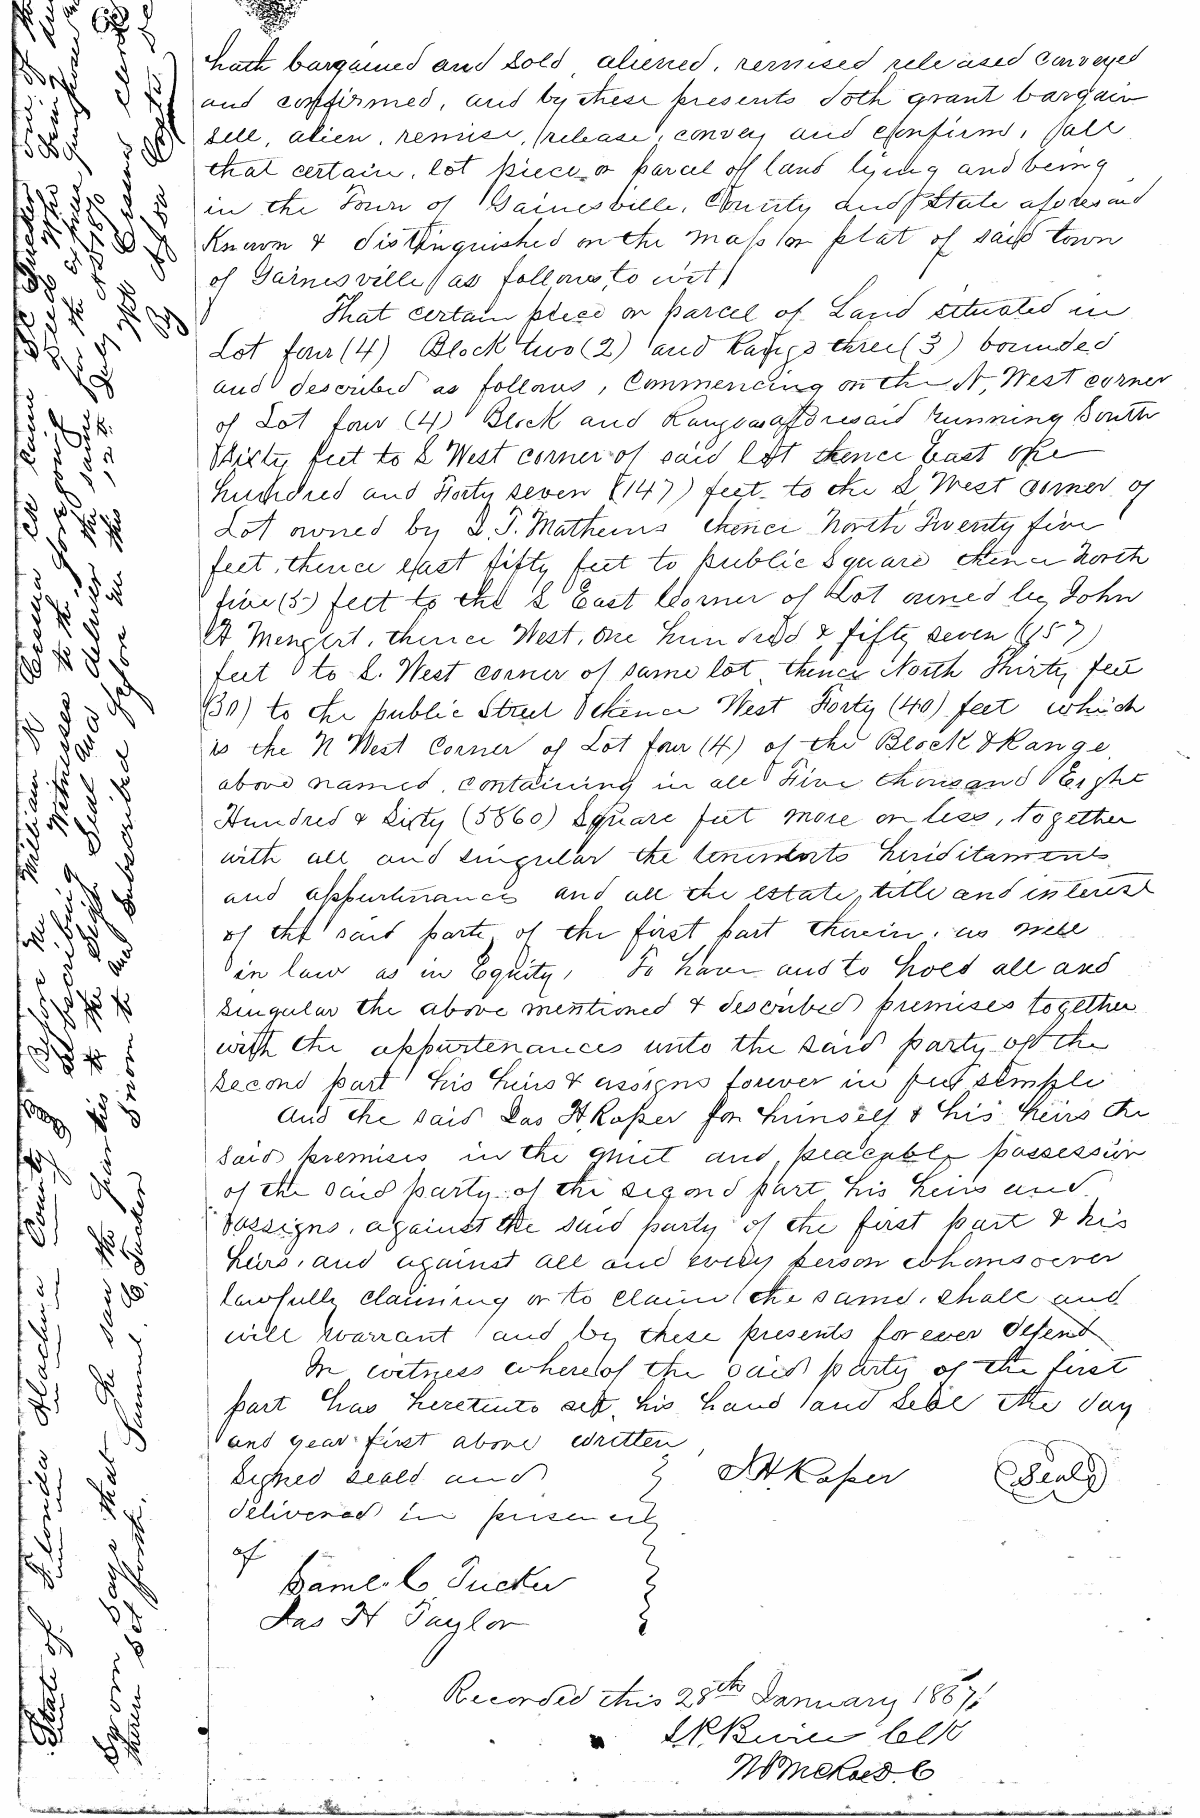 hath bargained and sold, aliened, remised released conveyed
and confirmed, and by these presents doth grant bargain
sell, alien, remise, release, convey and confirm, all
that certain, lot piece or parcel of land lying and being
in the Town of Gainesville, County and State aforesaid
Known & distinguished on the map or plat of said town
of Gainesville as follows, to wit
That certain piece or parcel of Land situated in
Lot four (4) Block two (2) and Range three (3) bounded
and described as follows, Commencing on the N, West corner
of Lot four (4) Block and Range aforesaid running South
Sixty feet to S West corner of said lot thence East one
hundred and Forty seven (147) feet to the S West corner of
Lot owned by S. T. Mathews thence North Twenty five
feet, thence east fifty feet to public Square thence North
five (5) feet to the S East Corner of Lot owned by John
A Mengert, thence West, one hundred & fifty seven (157)
feet to S. West corner of same lot thence North Thirty feet
(30) to the public Street thence West Forty (40) feet which
is the N West Corner of Lot four (4) of the Block & Range
above named, containing in all Five thousand Eight
Hundred & Sixty (5860) Square feet more or less, together
with all and singular the tenements heriditaments
and appurtenances and all the estate, title and interest
of the said party of the first part therein, as well
in law as in Equity, To have and to hold all and
singular the above mentioned & described premises together
with the appurtenances unto the said party of the
second part his heirs & assigns forever in fee simple
And the said Jas H. Roper for himself & his heirs the
said premises in the quiet and peaceable possession
of the said party of the second part his heirs and
assigns, against the said party of the first part & his
heirs, and against all and every person whomsoever
lawfully claiming or to claim the same, shall and
will warrant and by these presents for ever defend
In witness whereof the said party of the first
part has hereunto set, his hand and seal the day
and year first above written,
Signed seald and J H Roper (Seal)
delivered in presence
of
Saml. C. Tucker
Jas H Taylor
Recorded this 28th January 1867
Clk
D. C
State of Florida Alachua County Before me William K Cessna Clk came S C Tucker one of the
Subscribing Witnesses to the foregoing Deed who being duly
Sworn Says that he saw the Grantor Sign Seal and deliver the same for the uses purposes
therein set forth. Samuel C. Tucker
Sworn to and Subscribed before me this 12th July AD 1870
Wk Cessna Clerk
By